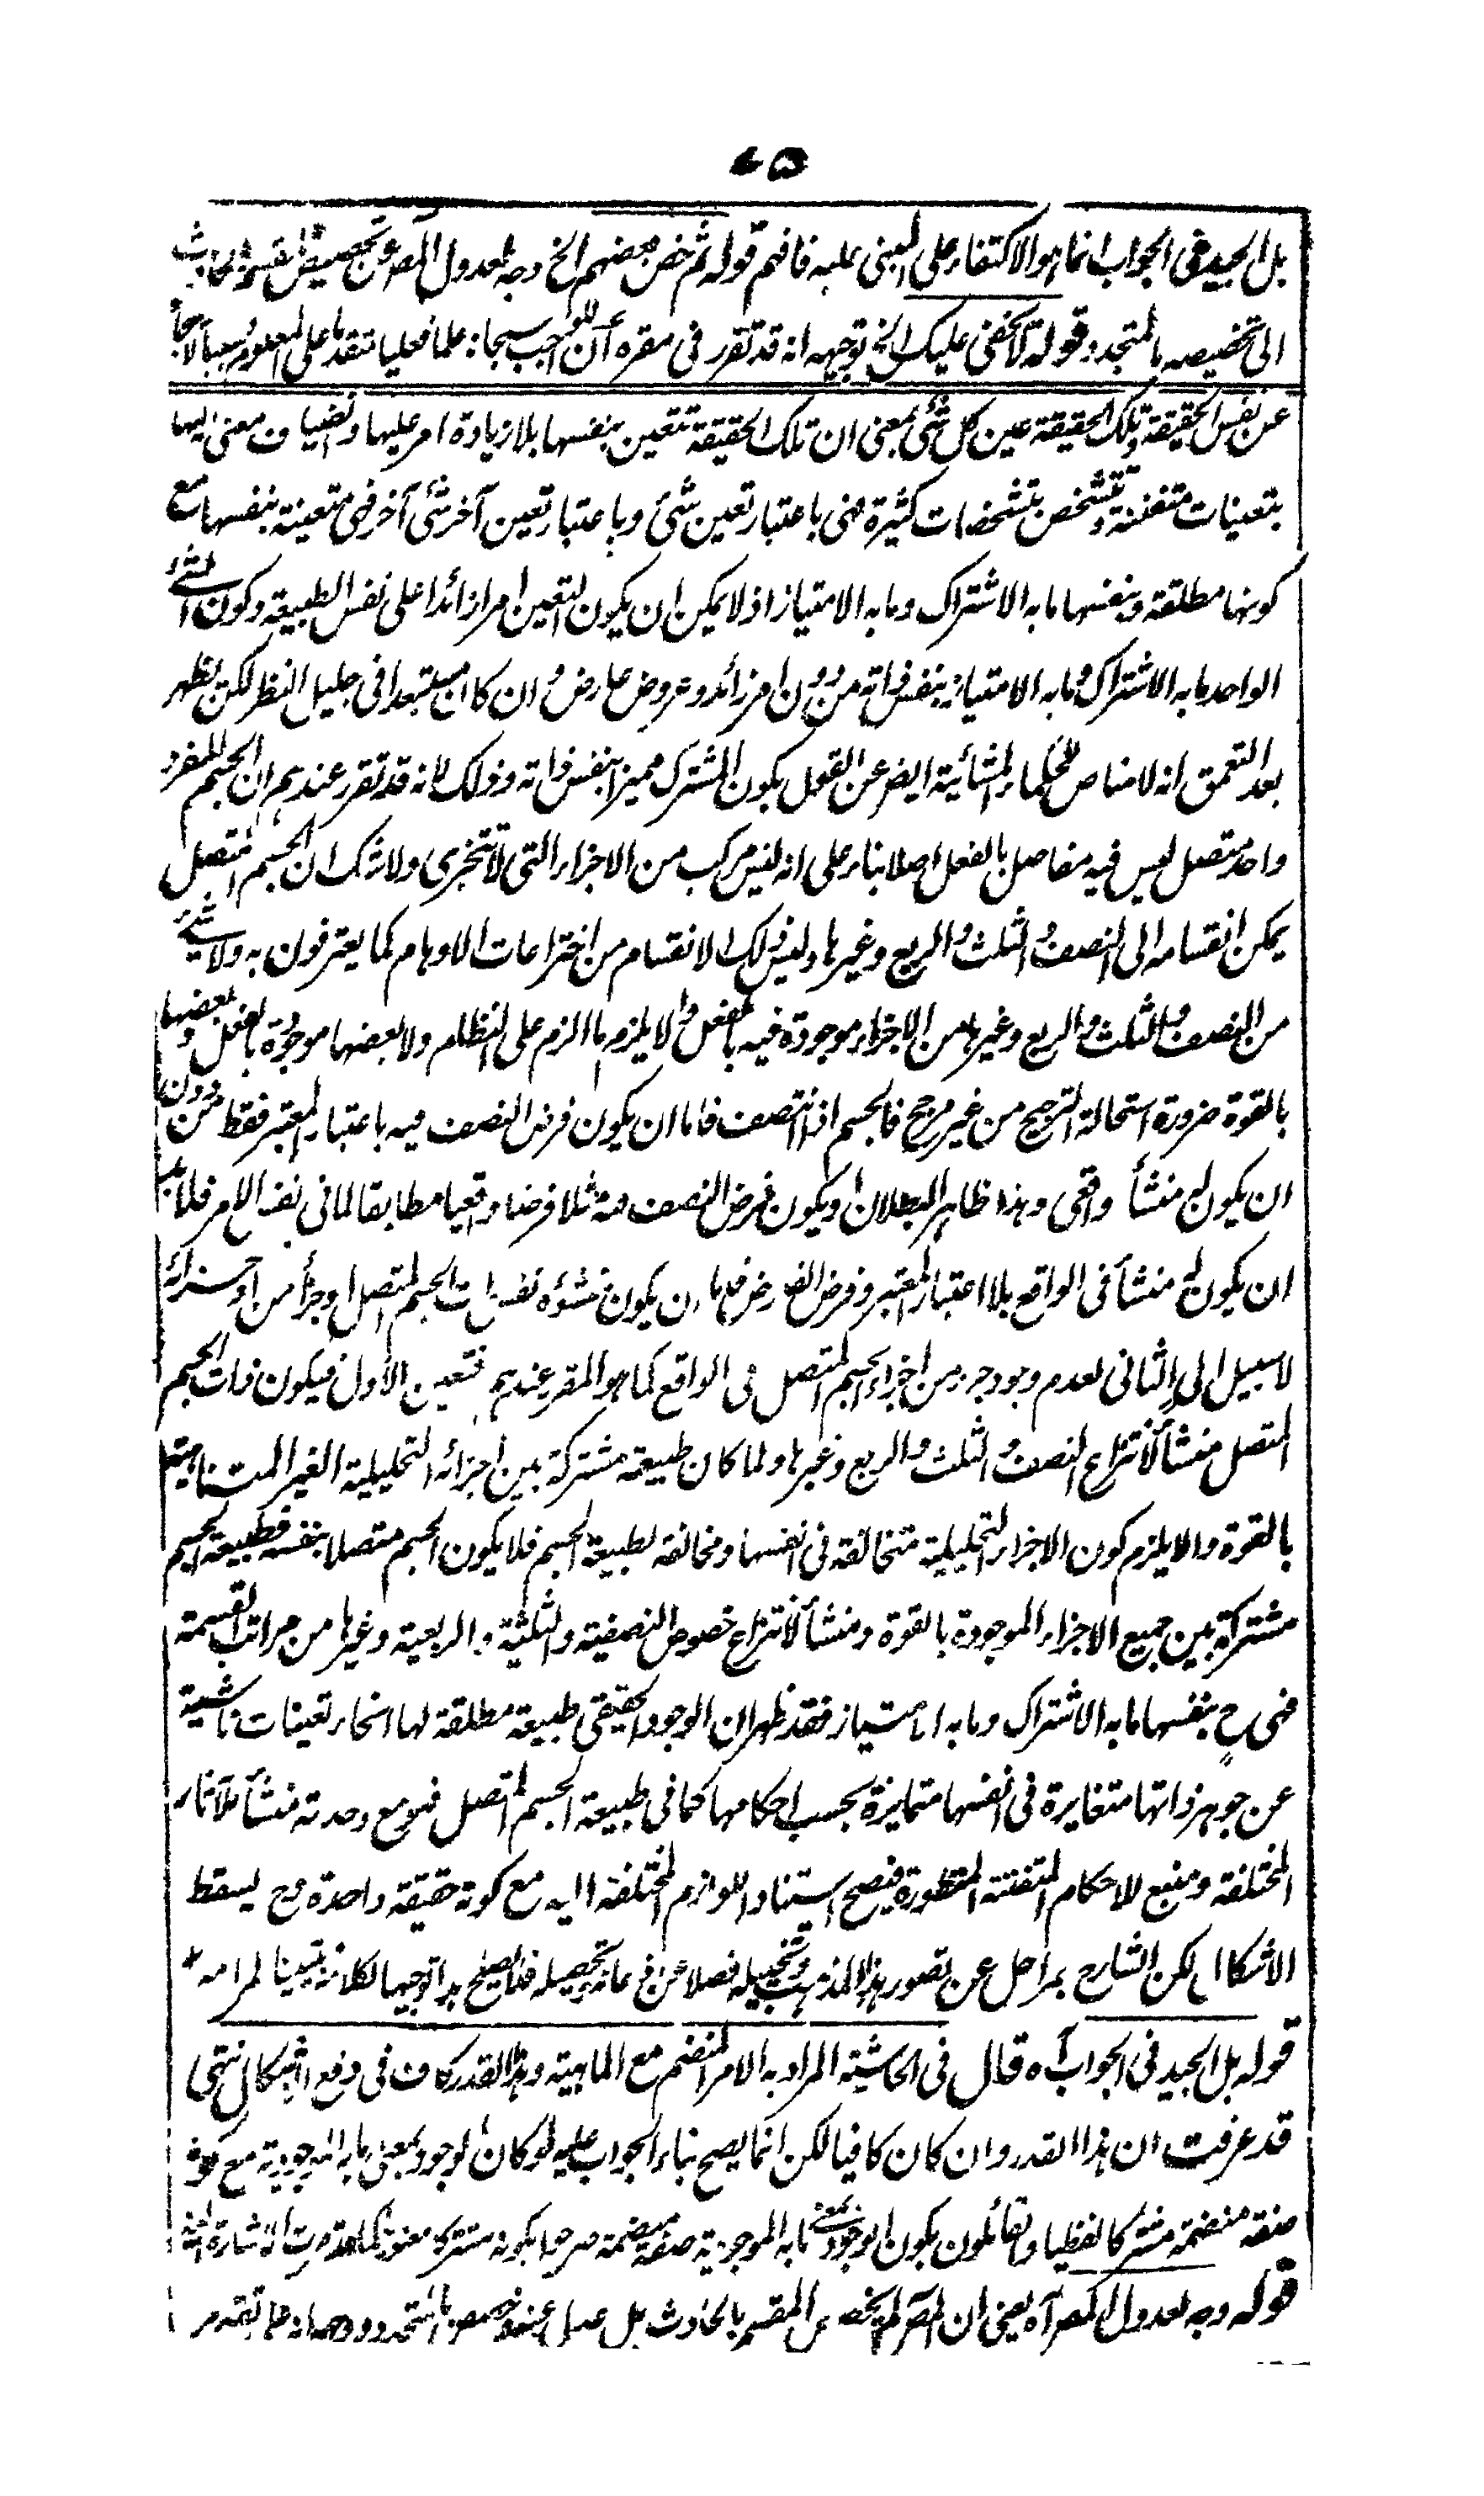 ٤٥
بل الجيد فى الجواب انما هو الاكتفاء على المبنى عليه فافهم قوله ثم خص بعضهم الخ وجه لعدول المص عن تخصيص المقسم بالحادث
الى تخصيصه بالمتجدد قوله لا يخفى عليك الخ توجيهه انه قد تقرر فى مقره أن للواجب سبحانه علما فعليا متقدما على المعلوم
عن نفس الحقيقة وتلك الحقيقة عين كل شئ بمعنى ان تلك الحقيقة تتعين بنفسها بلا زيادة امر عليها وانضياف معنى اليها
بتعينات متفننة وتتشخص بتشخصات كثيرة فهى باعتبار تعين شئ وباعتبار تعين آخر شئ آخر فهى متعينة بنفسها مع
كونها مطلقة وبنفسها ما به الاشتراك وما به الامتياز اذ لا يمكن ان يكون التعين امرا زائدا على نفس الطبيعة وكون الشئ
الواحد ما به الاشتراك وما به الامتياز بنفس ذاته من دون امر زائد وعروض عارض وان كان مستبعدا فى جليل النظر لكن يظهر
بعد التعمق انه لا مناص للحكماء المشائية ايضا عن القول بكون المشترك مميزا بنفس ذاته وذلك لانه قد تقرر عندهم ان الجسم المفرد
واحد متصل ليس فيه مفاصل بالفعل اصلا بناء على انه ليس مركب من الاجزاء التى لا تتجزى ولا شك ان الجسم المتصل
يمكن انقسامه الى النصف والثلث والربع وغيرها وليس ذلك الانقسام من اختراعات الاوهام كما يعترفون به ولا شئ
من النصف والثلث والربع وغيرها من الاجزاء موجودة فيه بالفعل والا يلزم ما الزم على النظام ولا بعضها موجودة بالفعل وبعضها
بالقوة ضرورة استحالة الترجيح من غير مرجح فالجسم اذا انتصف فاما ان يكون فرض النصف فيه باعتبار المعتبر فقط من دون
ان يكون له منشأ واقعى وهذا ظاهر البطلان او يكون فرض النصف منه مثلا فرضا واقعيا مطابقا لما فى نفس الامر فلا بد
ان يكون له منشأ فى الواقع بلا اعتبار المعتبر وفرض الفارض فاما ان يكون منشؤه نفس ذات الجسم المتصل او جزأ من اجزائه
لا سبيل الى الثانى لعدم وجود جزء من اجزاء الجسم المتصل فى الواقع كما هو المقرر عندهم فتعين الاول فيكون ذات الجسم
المتصل منشأ لانتزاع النصف والثلث والربع وغيرها ولما كان طبيعة مشتركة بين اجزائه التحليلية الغير المتناهية
بالقوة والا يلزم كون الاجزاء التحليلية متخالفة فى انفسها ومخالفة لطبيعة الجسم فلا يكون الجسم متصلا بنفسه فطبيعة الجسم
مشتركة بين جميع الاجزاء الموجودة بالقوة ومنشأ لانتزاع خصوص النصفية والثلثية والربعية وغيرها من مراتب القسمة
فهى ح بنفسها ما به الاشتراك وما به الامتياز فقد ظهر ان الوجود الحقيقى طبيعة مطلقة لها انحاء تعينات ناشية
عن جوهر ذاتها متغايرة فى انفسها متمايزة بحسب احكامها كما فى طبيعة الجسم المتصل فهو مع وحدته منشأ للآثار
المختلفة ومنبع للاحكام المتفننة المتطورة فيصح استناد اللوازم المختلفة اليه مع كونه حقيقة واحدة وح يسقط
الاشكال لكن الشارح بمراحل عن تصور هذا المذهب وتخييله فضلا عن اذعانه وتحصيله فلا يصلح هذا توجيها لكلامه وتبيينا لمرامه
قوله بل الجيد فى الجواب آه قال فى الحاشية المراد به الامر المنضم مع الماهية وهذا القدر كاف فى دفع الاشكال انتهى
قد عرفت ان هذا القدر وان كان كافيا لكن انما يصح بناء الجواب عليه لو كان الوجود بمعنى ما به الموجودية مع كونه
صفة منضمة مشتركا لفظيا والقائلون بكون الوجود بمعنى ما به الموجودية صفة منضمة صرحوا بكونه مشتركا معنويا كما قدمرت الاشارة اليه
قوله وجه لعدول المص آه يعنى ان المص لم يخصص المقسم بالحادث بل عدل عنه وخصصه بالمتجدد